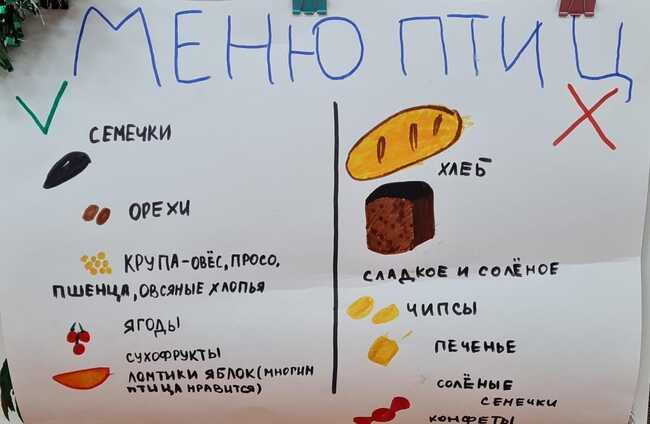 МЕНЮ ПТИЦ
СЕМЕЧКИ
ОРЕХИ
КРУПА-ОВЁС, ПРОСО,
ПШЕНЦА, ОВСЯНЫЕ ХЛОПЬЯ
ЯГОДЫ
СУХОФРУКТЫ
ЛОМТИКИ ЯБЛОК (МНОГИМ
ПТИЦА НРАВИТСЯ)
ХЛЕБ
СЛАДКОЕ И СОЛЁНОЕ
ЧИПСЫ
ПЕЧЕНЬЕ
СОЛЁНЫЕ
СЕМЕЧКИ
КОНФЕТЫ